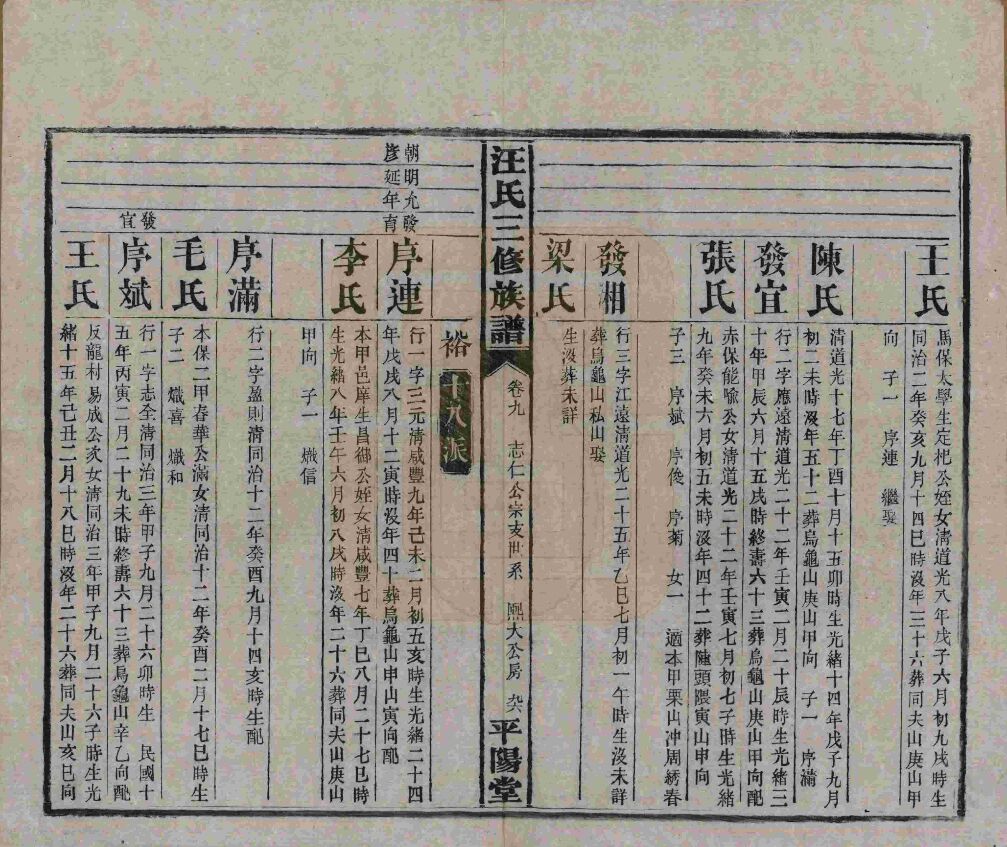 王氏
馬保太學生定祀公姪女清道光八年戊子六月初九戌時生
同治二年癸亥九月十四巳時沒年三十六葬同夫山庚山甲
向 子一 序連 繼娶
陳氏
清道光十七年丁酉十月十五卯時生光緒十四年戊子九月
初二未時沒年五十二葬烏龜山庚山甲向 子一 序滿
發宜
行二字應遠清道光二十二年壬寅二月二十辰時生光緒三
十年甲辰六月十五戌時終壽六十三葬烏龜山庚山甲向配
張氏
赤保能喩公女清道光二十二年壬寅七月初七子時生光緒
九年癸未六月初五未時沒年四十二葬陡頭隈寅山申向
子三 序斌 序俊 序菊 女一 適本甲栗山冲周綉春
發湘
行三字江遠清道光二十五年乙巳七月初一午時生沒未詳
葬烏龜山私山娶
梁氏
生沒葬未詳
汪氏三修族譜
卷九 志仁公宗支世系 熙大公房
平陽堂
裕 十八派
朝明允發
彥延年育
序連
行一字三元清咸豐九年己未二月初五亥時生光緒二十四
年戊戌八月十二寅時沒年四十葬烏龜山申山寅向配
李氏
本甲邑庠生昌御公姪女清咸豐七年丁巳八月二十七巳時
生光緒八年壬午六月初八戌時沒年二十六葬同夫山庚山
甲向 子一 熾信
序滿
行二字盈則清同治十二年癸酉九月十四亥時生配
毛氏
本保二甲春華公滿女清同治十二年癸酉二月十七巳時生
子二 熾喜 熾和
發宜
序斌
行一字志全清同治三年甲子九月二十六卯時生 民國十
五年丙寅二月二十九未時終壽六十三葬烏龜山辛乙向配
王氏
反龍村易成公次女清同治三年甲子九月二十六子時生光
緒十五年己丑二月十八巳時沒年二十六葬同夫山亥巳向